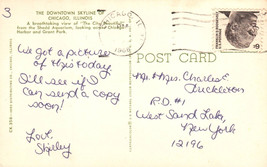 3
THE DOWNTOWN SKYLINE
CHICAGO, ILLINOIS
A breathtaking view of "The City Beautiful"
from the Shedd Aquarium, looking across Chicago
Harbor and Grant Park.
We got a picture
of this today
I'll see if I
can send a copy
soon!
Love,
Shirley
POST CARD
Mr. & Mrs. Charles
Huckleton
R.D. #1
West Sand Lake,
New York
12196